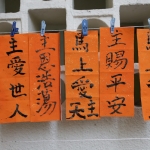 主愛世人
主恩浩蕩
馬上愛天主
主賜平安